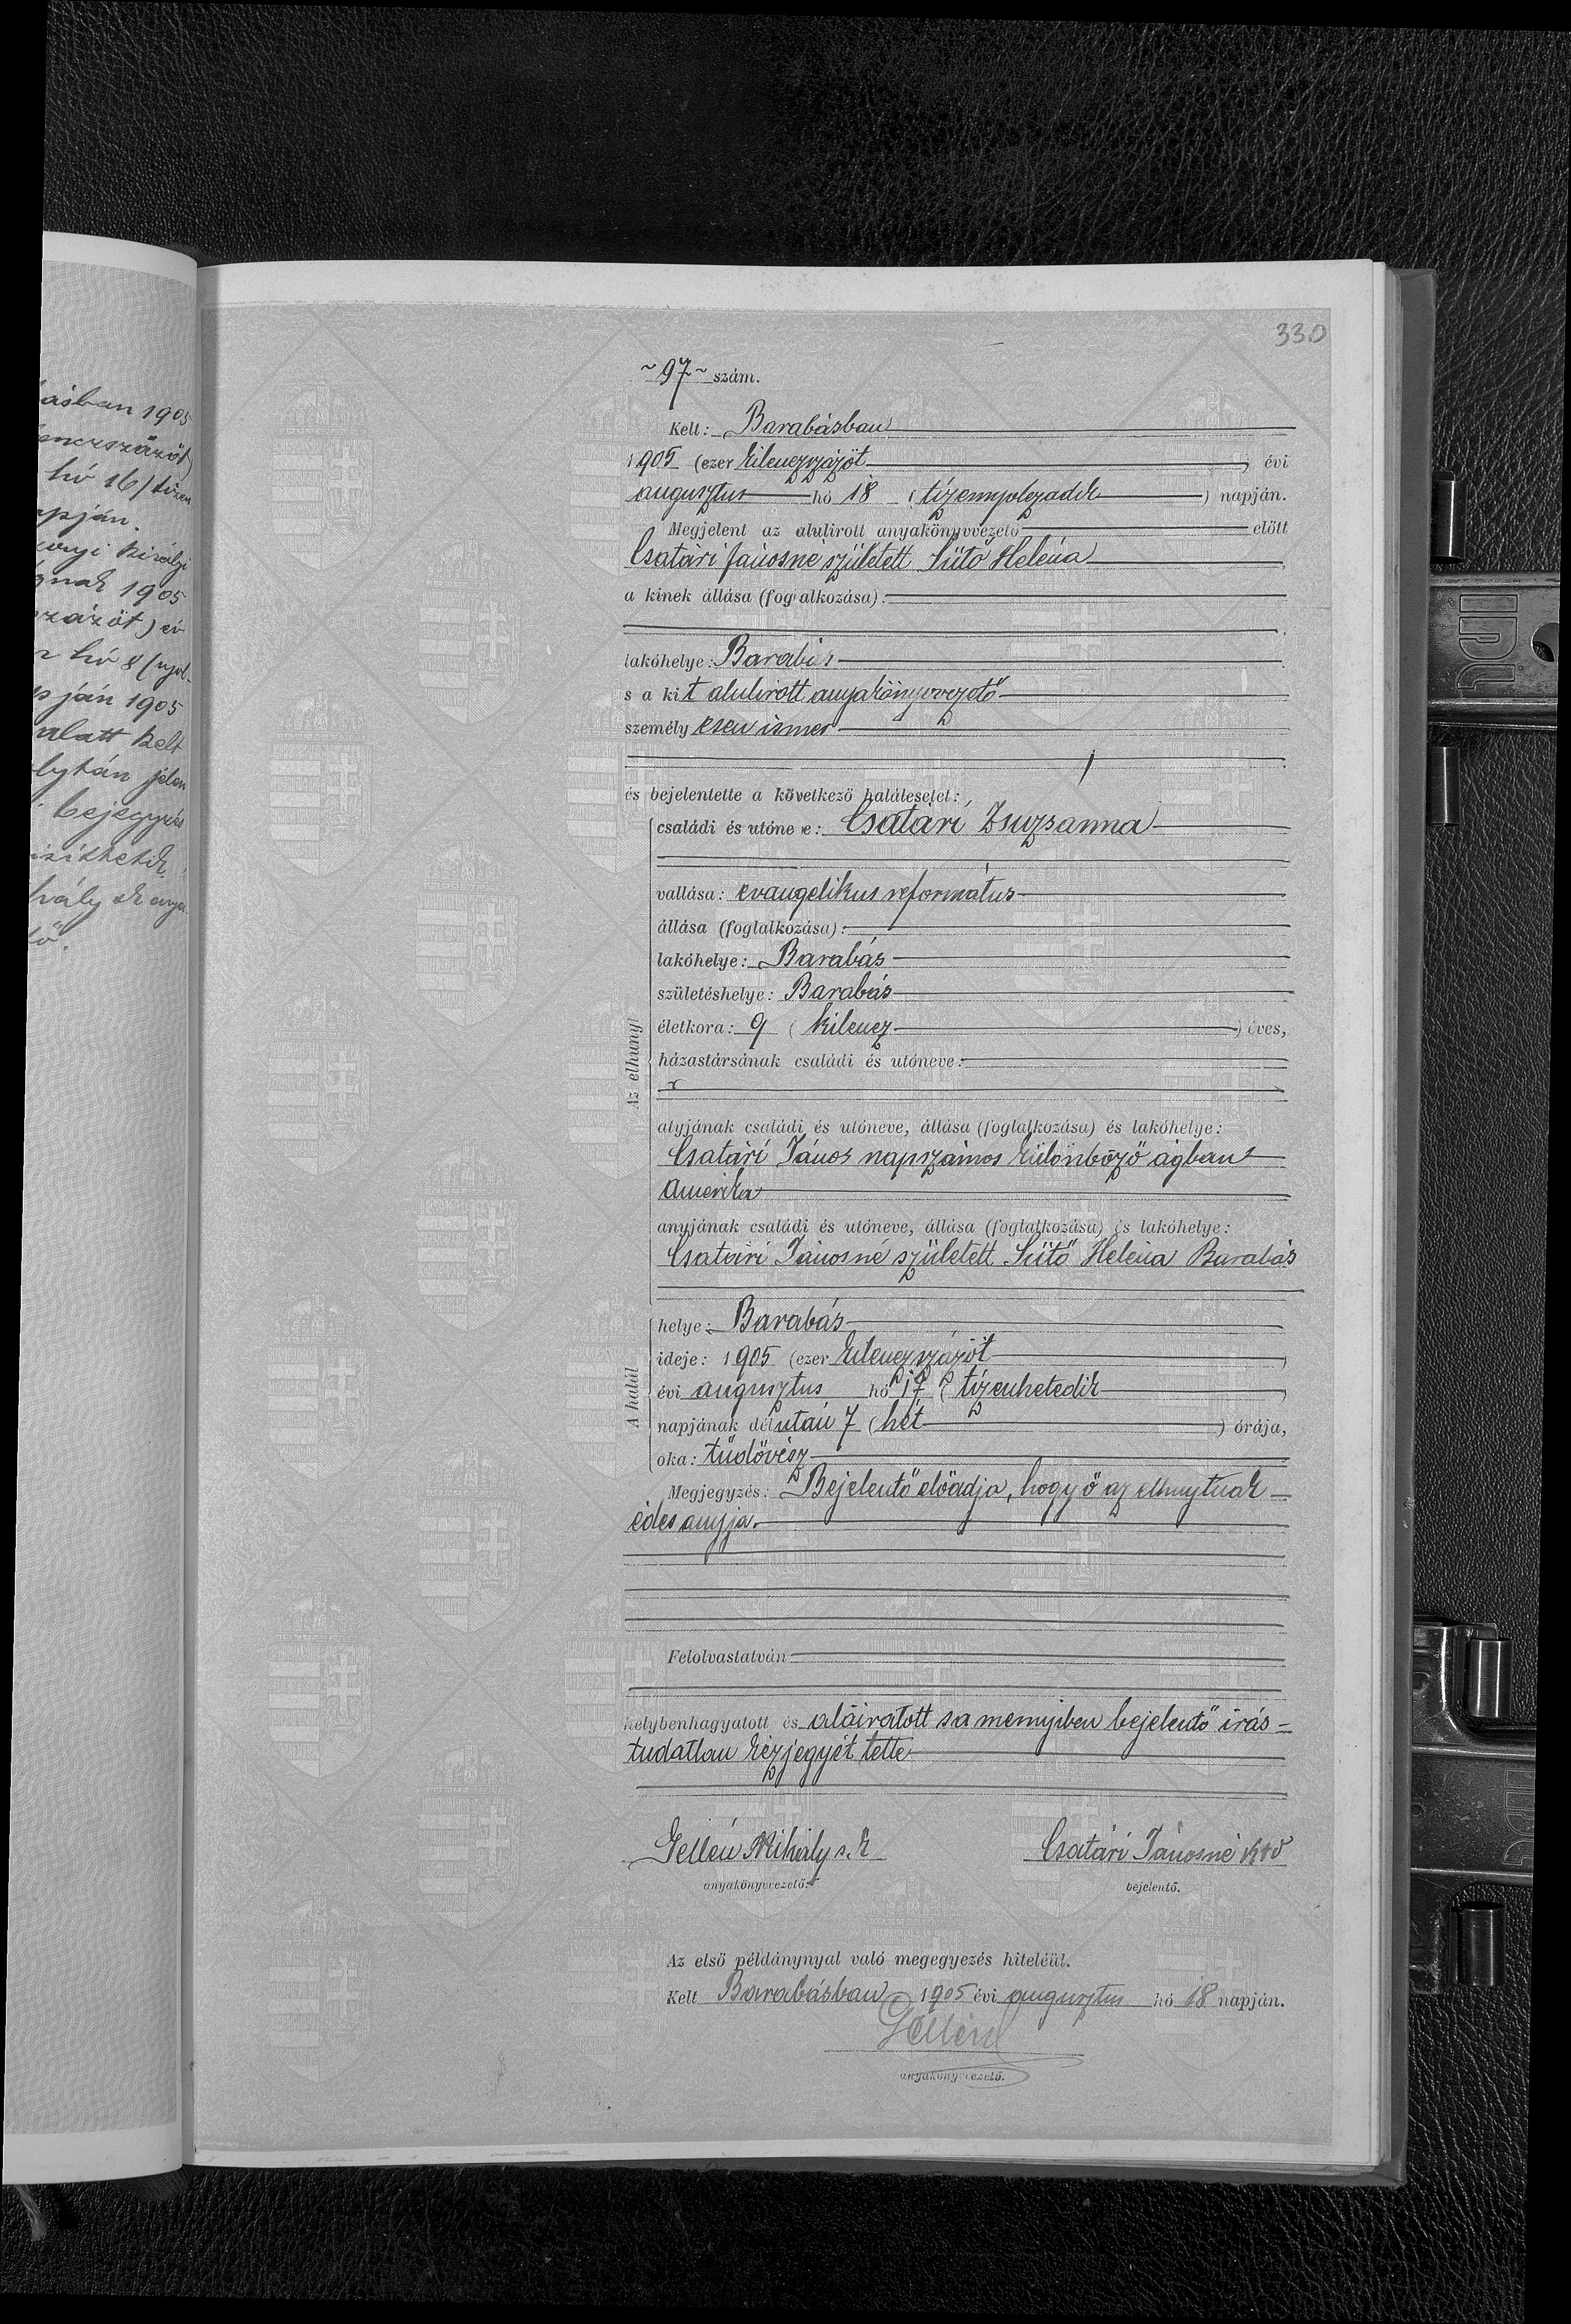 ásban 1905
enczszázöt)
hó 16 (tizen
apján.
1905
zázöt) év
hó 8 (nyol-
pján 1905
alatt kelt
jelen
bejegyzés
330
~ 97 ~ szám.
Kelt: Barabásban
1905 (ezer kilenczszázöt) évi
augusztus hó 18 (tizennyolczadik) napján.
Megjelent az alulirott anyakönyvvezető előtt
Csatári Jánosné született Sütő Heléna
a kinek állása (foglalkozása):
lakóhelye: Barabás
s a kit alulirott anyakönyvvezető
személyesen ismer
és bejelentette a következő halálesetet:
családi és utóneve: Csatári Zsuzsanna
vallása: evangelikus református
állása (foglalkozása):
lakóhelye: Barabás
születéshelye: Barabás
életkora: 9 (kilencz) éves,
házastársának családi és utóneve:
Az elhunyt
atyjának családi és utóneve, állása (foglalkozása) és lakóhelye:
Csatári János napszámos különböző ágban
Amerika
anyjának családi és utóneve, állása (foglalkozása) és lakóhelye:
Csatári Jánosné született Sütő Heléna Barabás
helye: Barabás
ideje: 1905 (ezer kilenczszázöt)
évi augusztus hó 17 (tizenhetedik)
A halál
napjának délután 7 (hét) órája,
oka: tüdővész
Megjegyzés: Bejelentő előadja, hogy ő az elhunytnak
édes anyja.
Felolvastatván
helybenhagyatott és aláiratott s a mennyiben bejelentő irás-
tudatlan kézjegyét tette
Gellén Mihály s.k Csatári Jánosné k+v
anyakönyvvezető. bejelentő.
Az első példánynyal való megegyezés hiteléül.
Kelt Barabásban 1905 évi augusztus hó 18 napján.
Gellén
anyakönyvvezető.